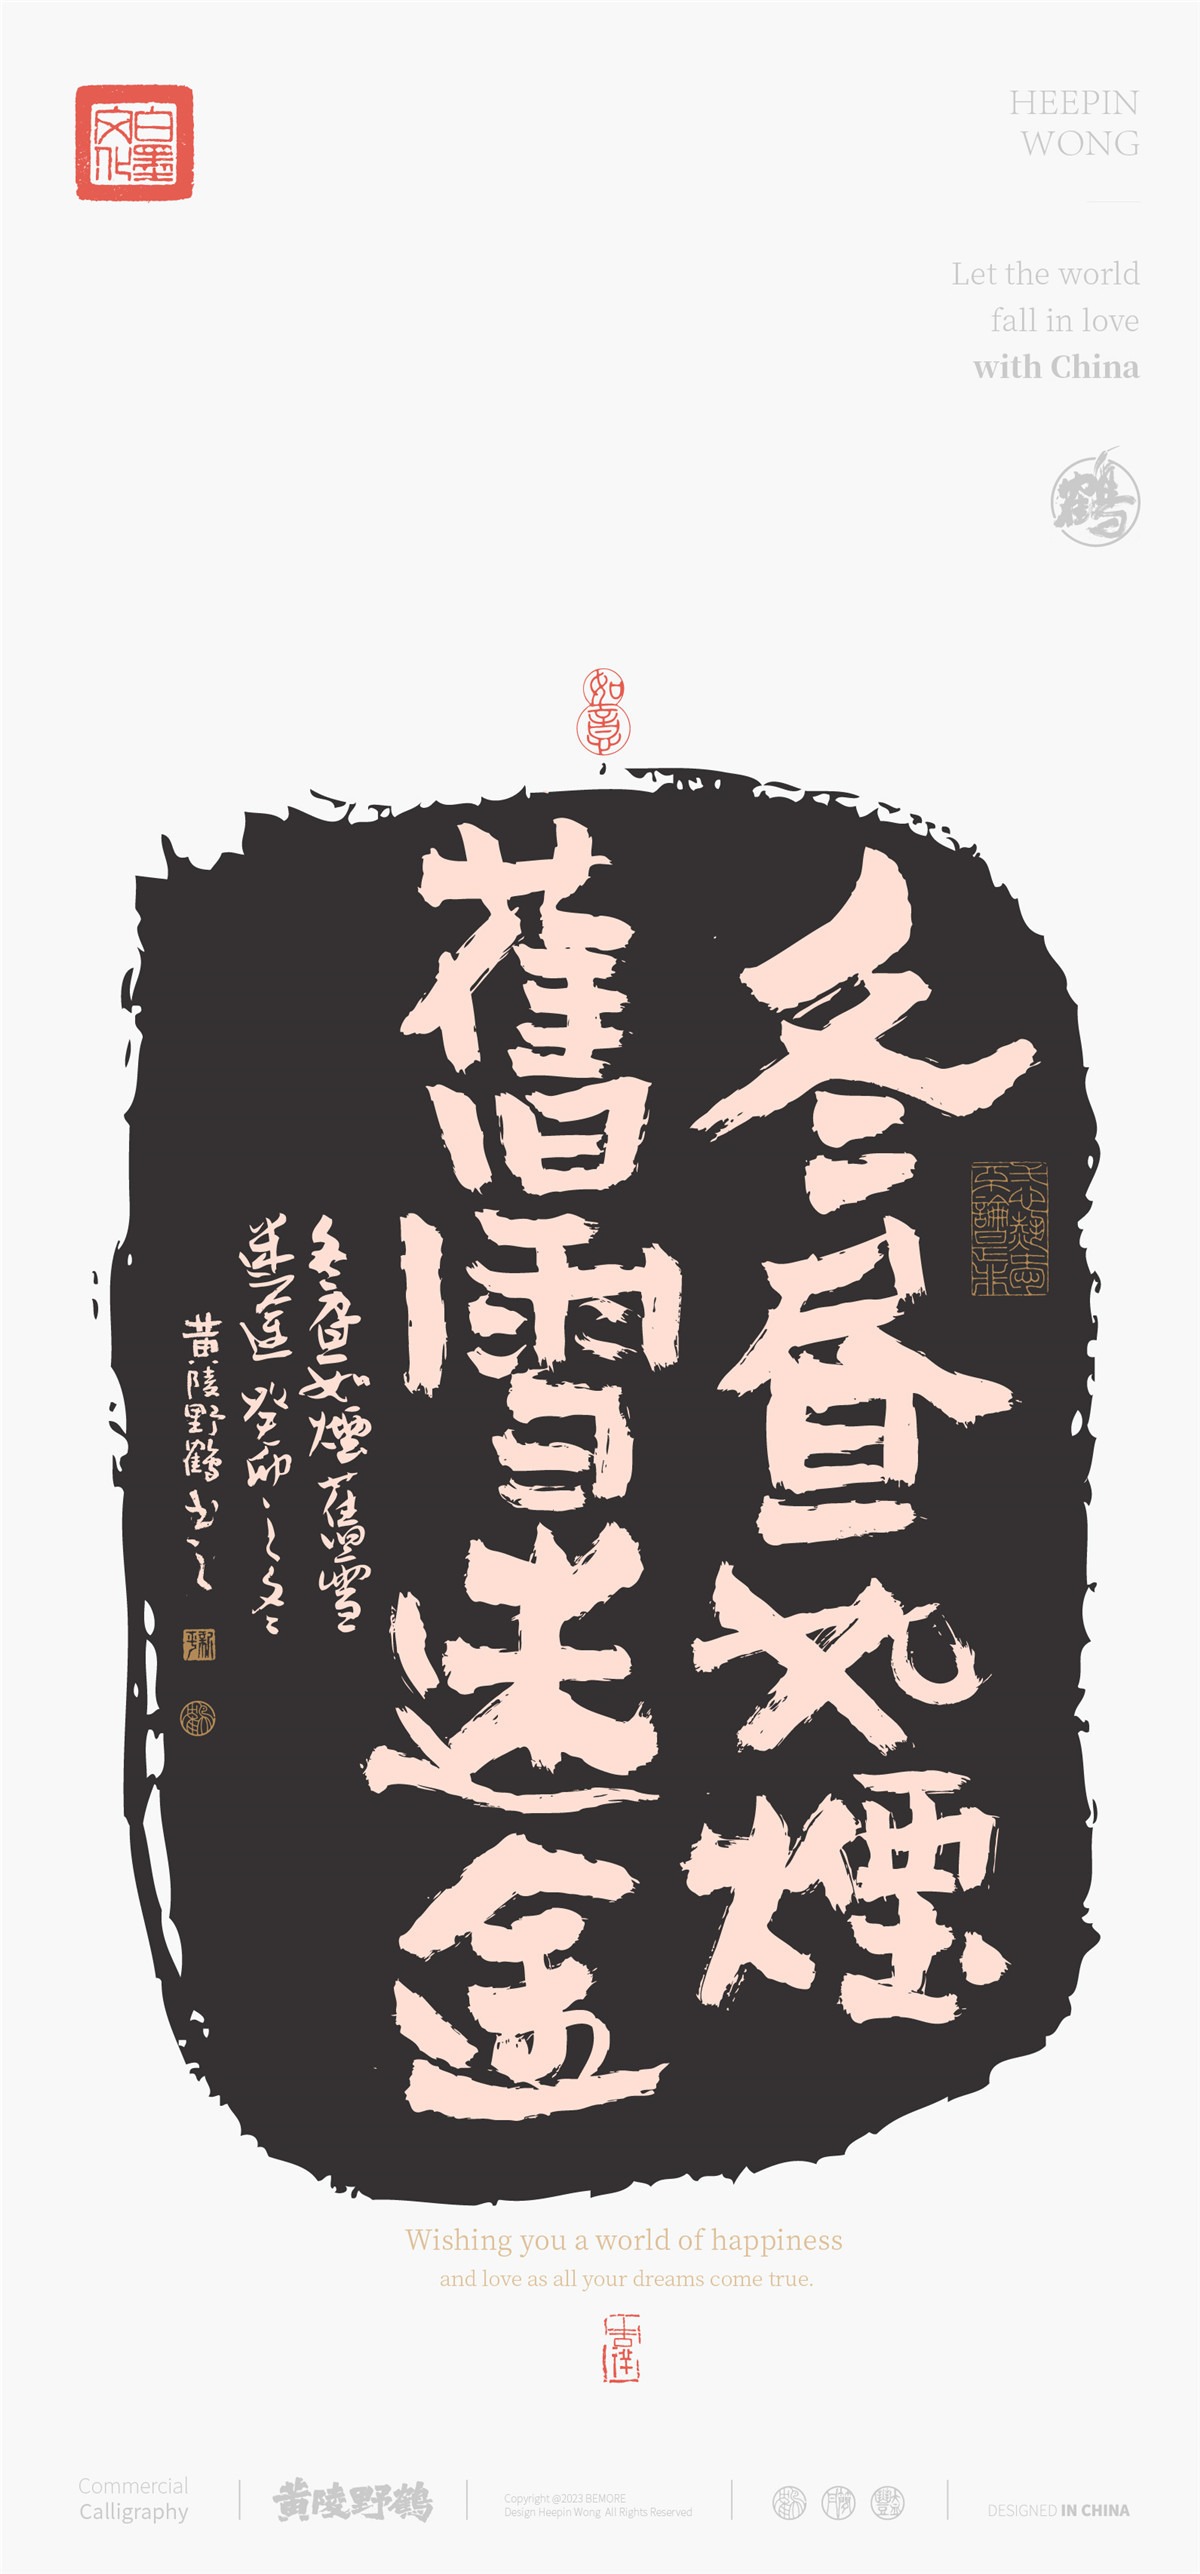 白墨文化
HEEPIN
WONG
Let the world
fall in love
with China
鶴
如意
冬昼如煙
舊雪迷途
冬昼如煙舊雪
迷途 癸卯之冬
黄陵野鶴书之
Wishing you a world of happiness
and love as all your dreams come true.
Commercial
Calligraphy
黄陵野鶴
Copyright @2023 BEMORE
Design Heepin Wong All Rights Reserved
DESIGNED IN CHINA